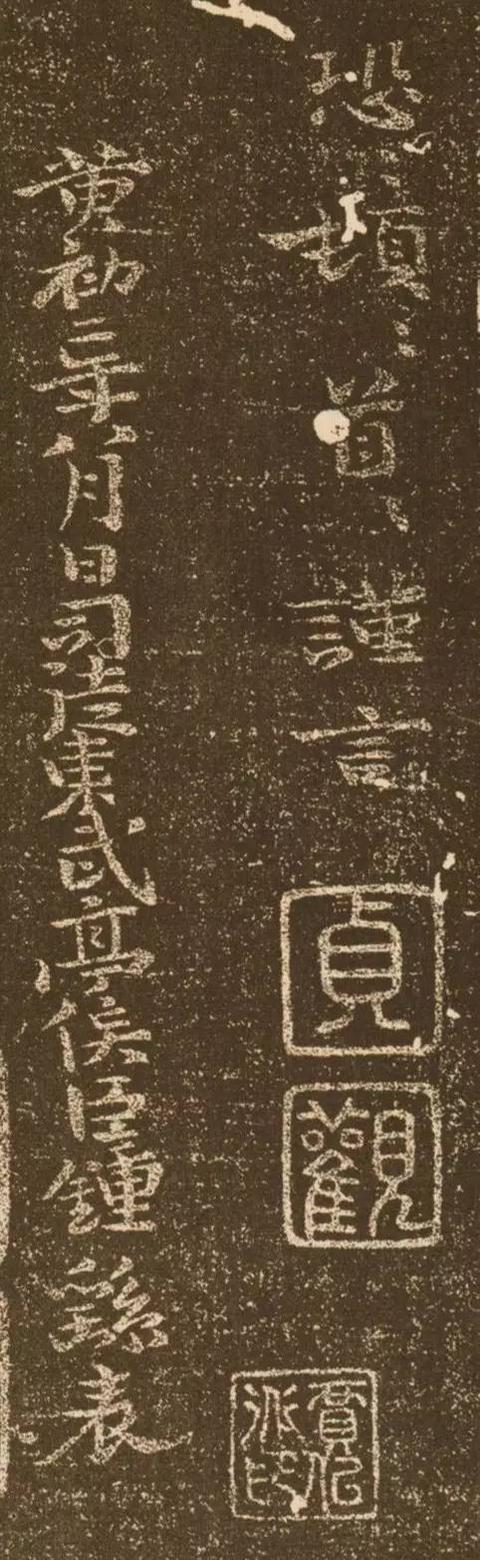 恐〻頓〻首〻謹言
貞
觀
黄初二年八月日司徒東武亭侯臣鍾繇表